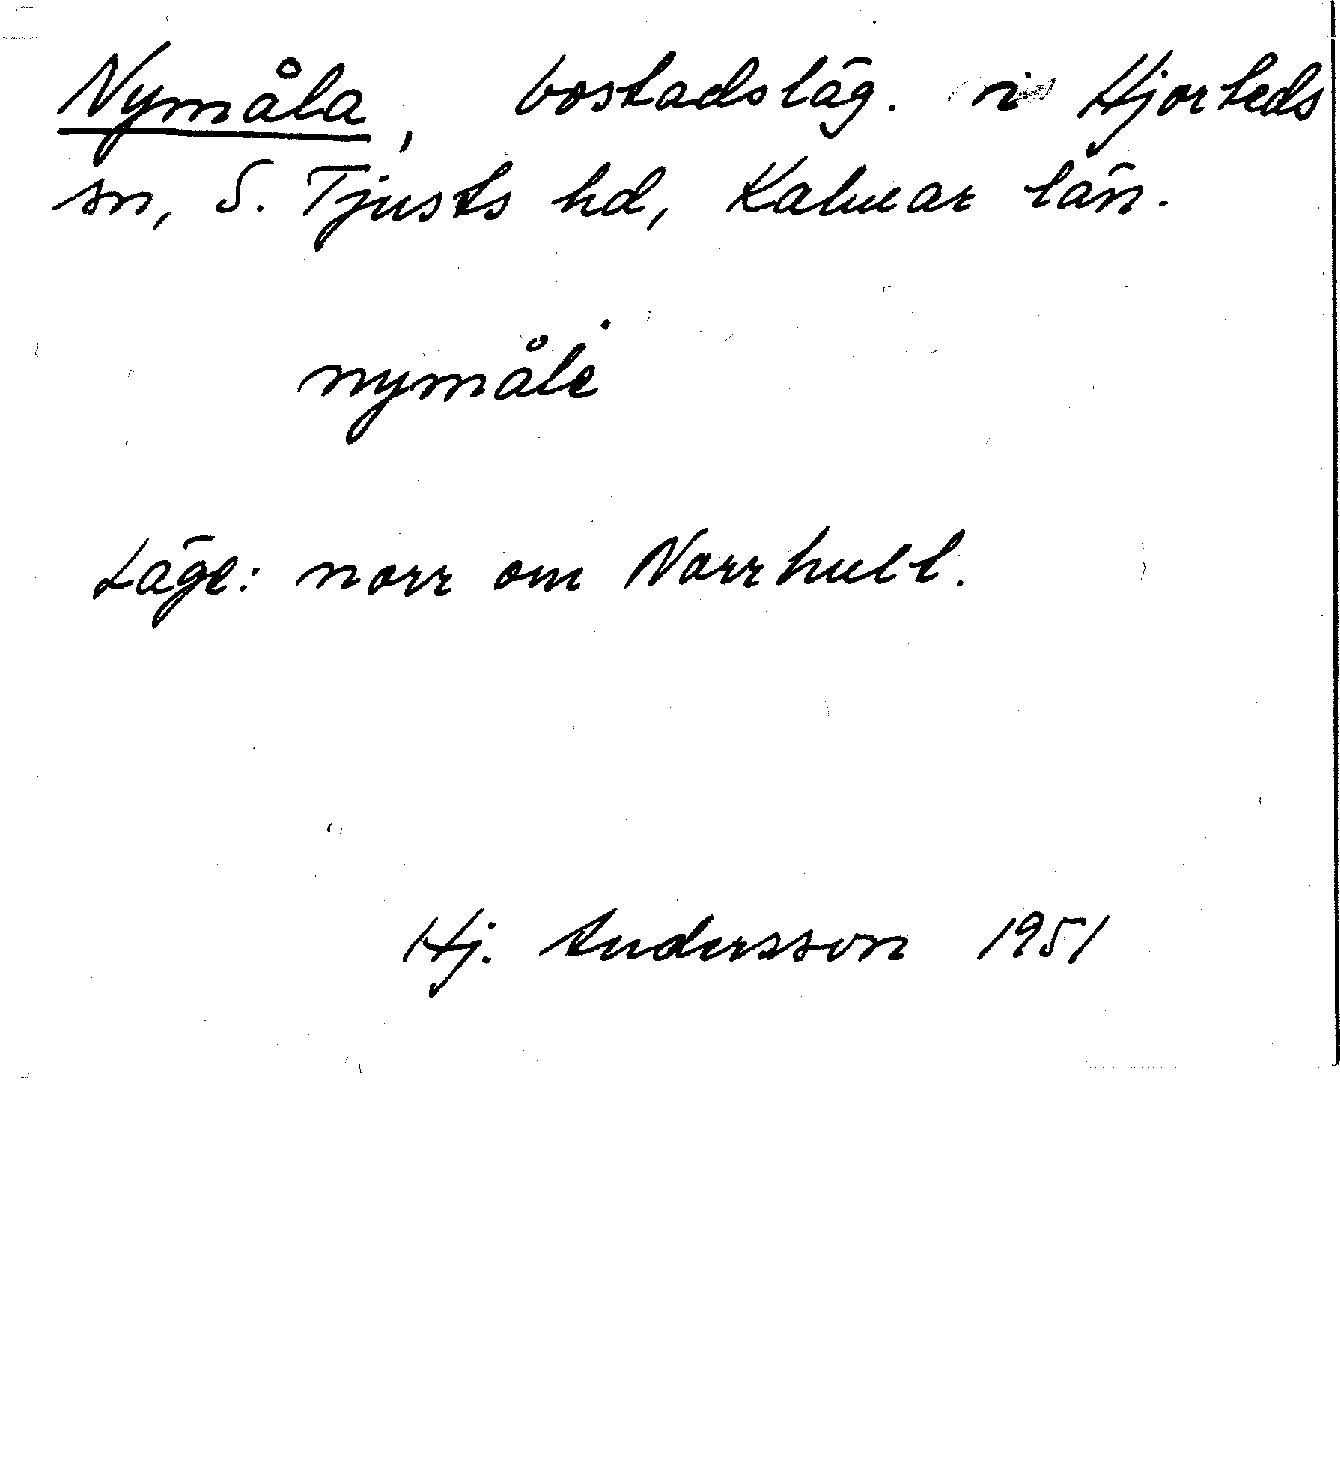 Nymåla, bostadsläg. i Hjorteds
sn, S. Tjusts hd, Kalmar län.
nymåle
Läge: norr om Norrhult.
Hj. Andersson 1951